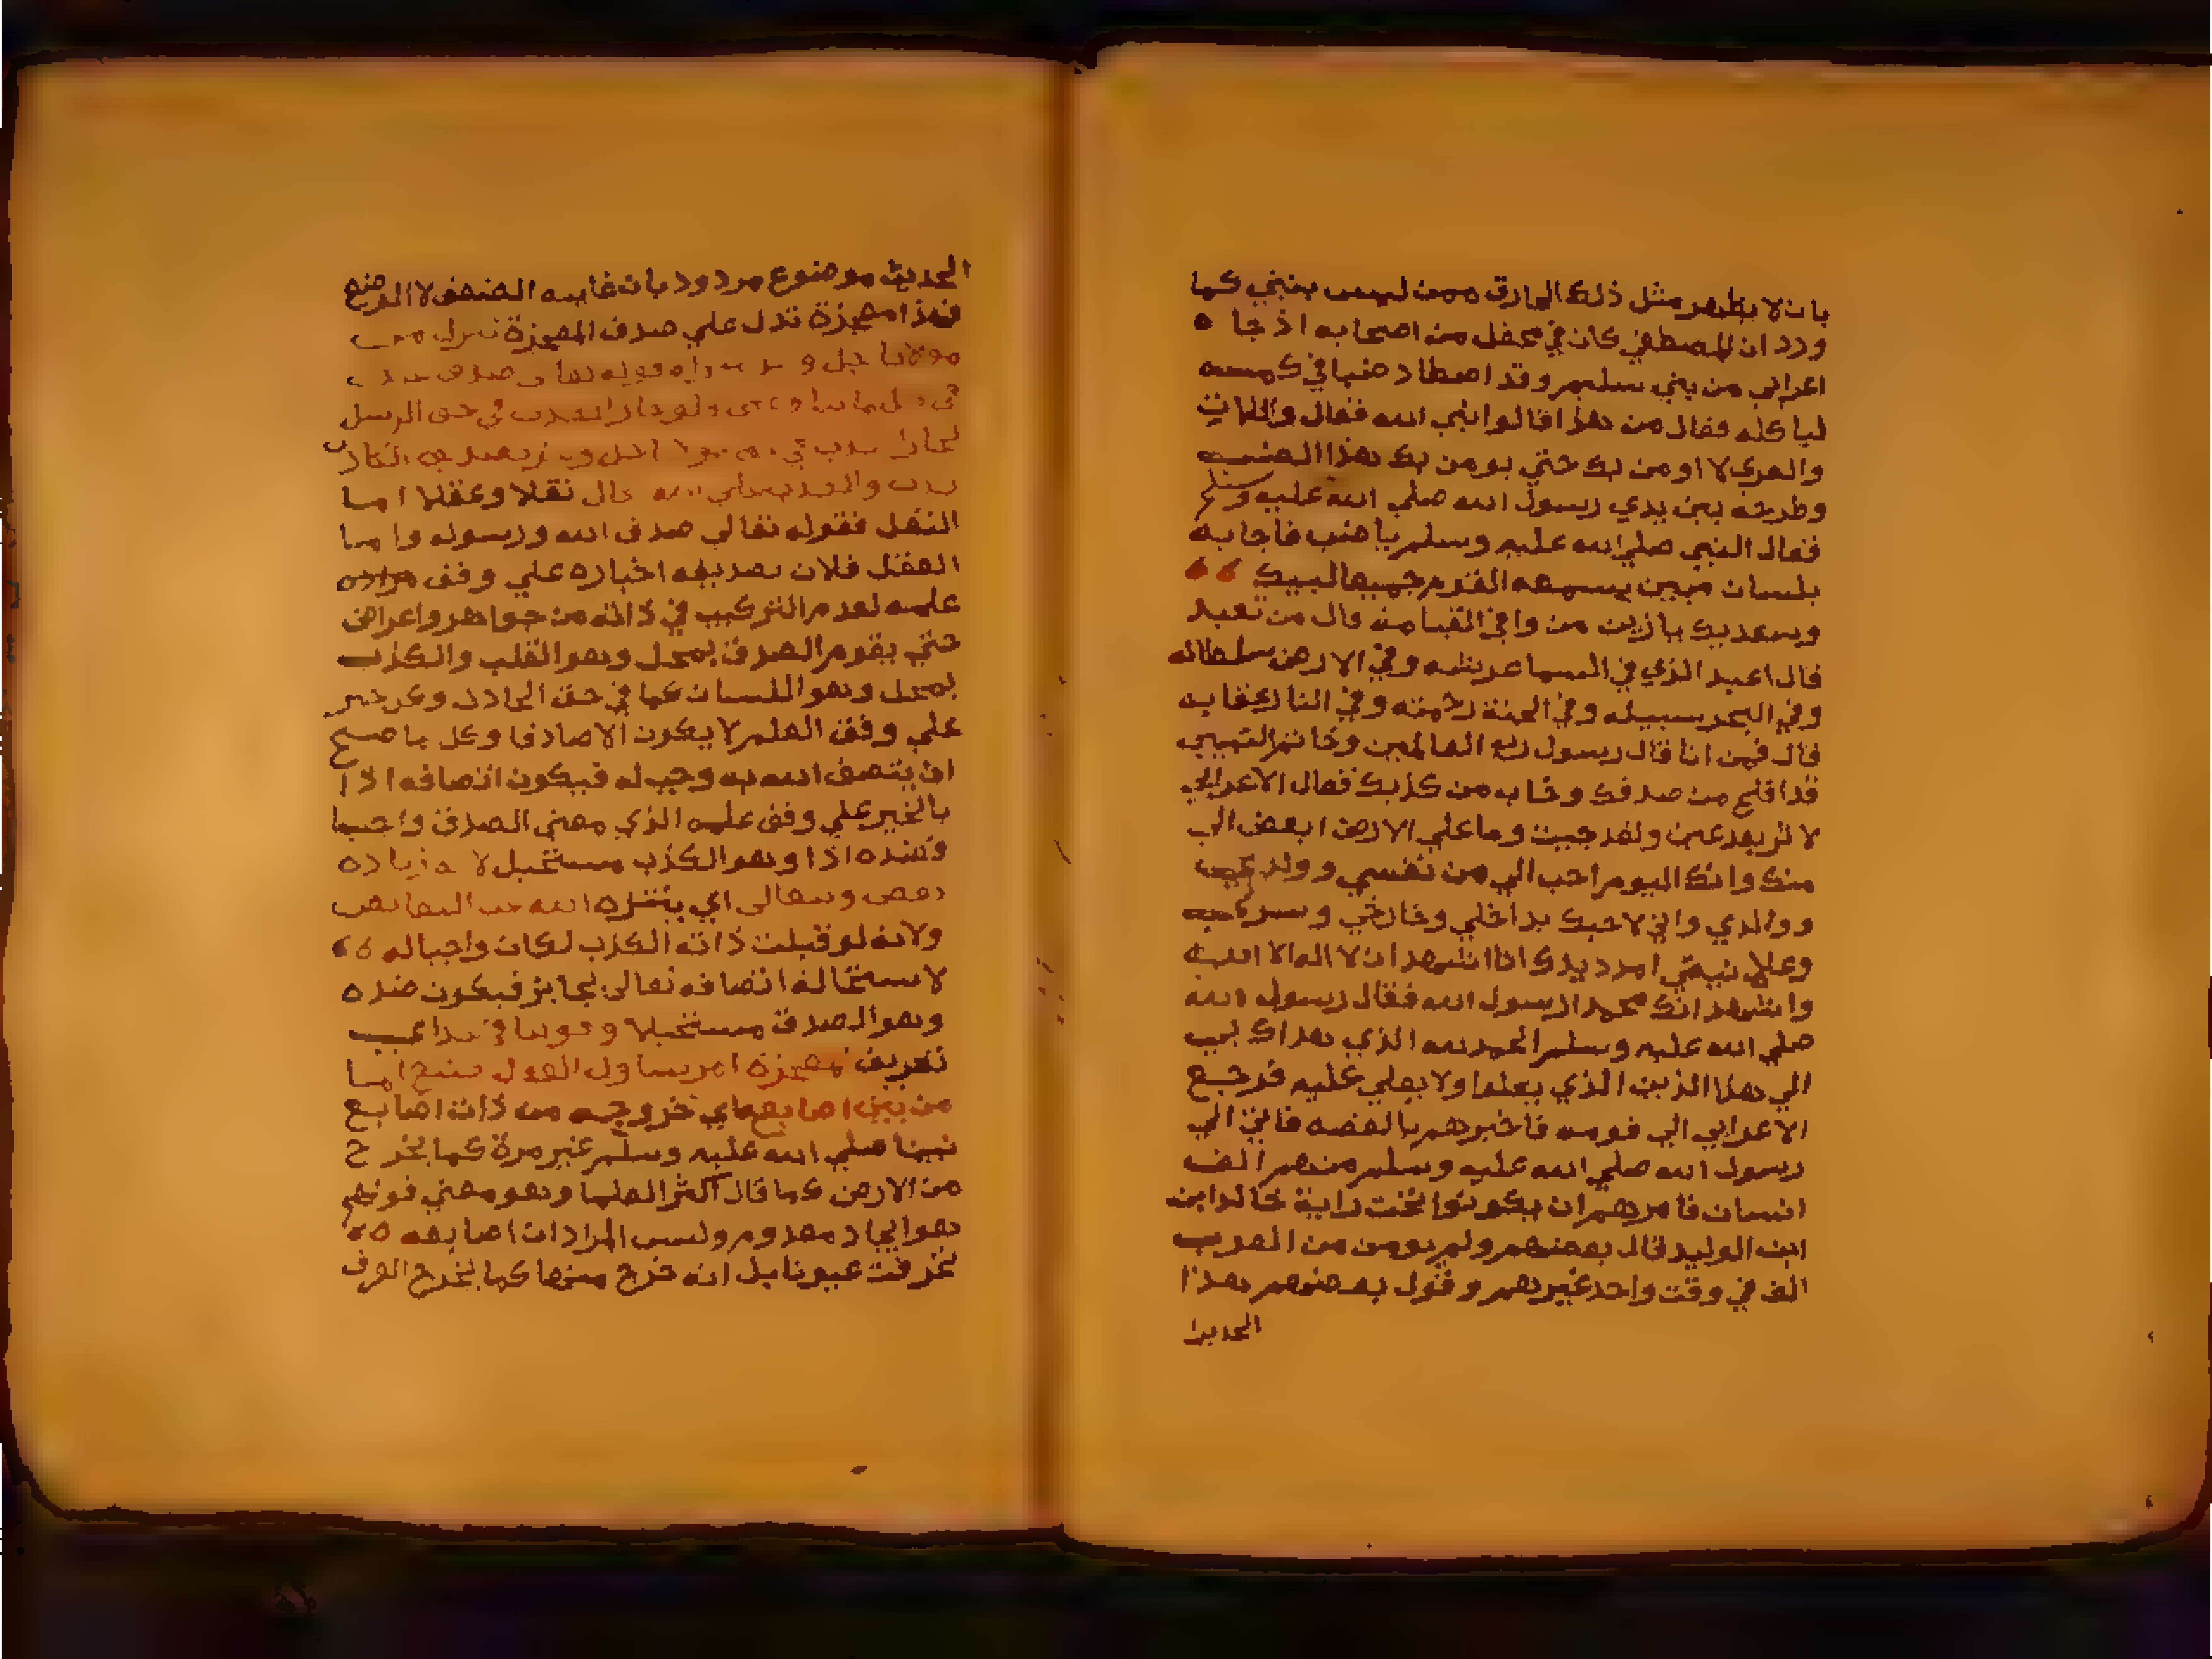 بان لا يظهر مثل ذلك الخارق ممن ليس بنبي كما
ورد ان المصطفي كان في محفل من اصحابه اذ جا ه
اعرابي من بني سليم وقد اصطاد ضبا في كمه
لياكله فقال من هذا قالوا نبي الله فقال واللات
والعزي لا اومن بك حتي يومن بك هذا الضب
وطرحه بين يدي رسول الله صلي الله عليه وسلم
فقال النبي صلي الله عليه وسلم يا ضب فاجابه
بلسان مبين يسمعه القوم جميعا لبيك
وسعديك يا زين من وافي القيامة قال من تعبد
قال اعبد الذي في السما عرشه وفي الارض سلطانه
وفي البحر سبيله وفي الجنة رحمته وفي النار عقابه
قال فمن انا قال رسول رب العالمين وخاتم النبيين
قد افلح من صدقك وخاب من كذبك فقال الاعرابي
لا اثر بعد عين ولقد جيت وما علي الارض ابغض الي
منك وانك اليوم احب الي من نفسي وولدي
ووالدي واني لاحبك بداخلي وخارجي وسري
وعلانيتي امدد يدك انا اشهد ان لا اله الا الله
واشهد انك محمد الرسول الله فقال رسول الله
صلي الله عليه وسلم الحمد لله الذي هداك بي
الي هذا الدين الذي يعلوا ولا يعلي عليه فرجع
الاعرابي الي قومه فاخبرهم بالقصه فاتي الي
رسول الله صلي الله عليه وسلم منهم الف
انسان فامرهم ان يكونوا تحت راية خالد ابن
ابن الوليد قال بعضهم ولم يومن من العرب
الف في وقت واحد غيرهم وقول بعضهم هذا
الحديث
الحديث موضوع مردود بان غايته الضعف لا الوضع
فهذا معجزة تدل علي صدق المعجزة تنزل من
مولانا جل و قوله تعالى صدق
في حق الرسل
الكاذب
نقلا وعقلا اما
النقل فقوله تعالي صدق الله ورسوله واما
العقل فلان تصديقه اخباره علي وفق
علمه لعدم التركيب في ذاته من جواهر واعراض
حتي يقوم الصدق بمحل وهو القلب والكذب
بمحل وهو اللسان كما في حق الحادث وكل خبر
علي وفق العلم لا يكون الا صادقا وكل ما صح
ان يتصف الله به وجب له فيكون اتصافه اذا
بالخبر علي وفق علمه الذي معني الصدق واجبا
وضده اذا وهو الكذب مستحيل لا زيادة
وتعالى اي يتنزه الله عن النقايص
ولانه لو قبلت ذاته الكذب لكان واجبا له
لاستحالة اتصافه تعالى بجايز فيكون ضده
وهو الصدق مستحيلا وقولنا في
تعريف معجزة امر يتناول الفعل اما
من بين اصابعه اي خروجه من ذات اصابع
نبينا صلي الله عليه وسلم غير مرة كما يخرج
من الارض كما قال اكثر العلما وهو معني قولهم
هو ايجاد معدوم وليس المراد ان اصابعه
تخرقت عيونا بل انه خرج منها كما يخرج العرق